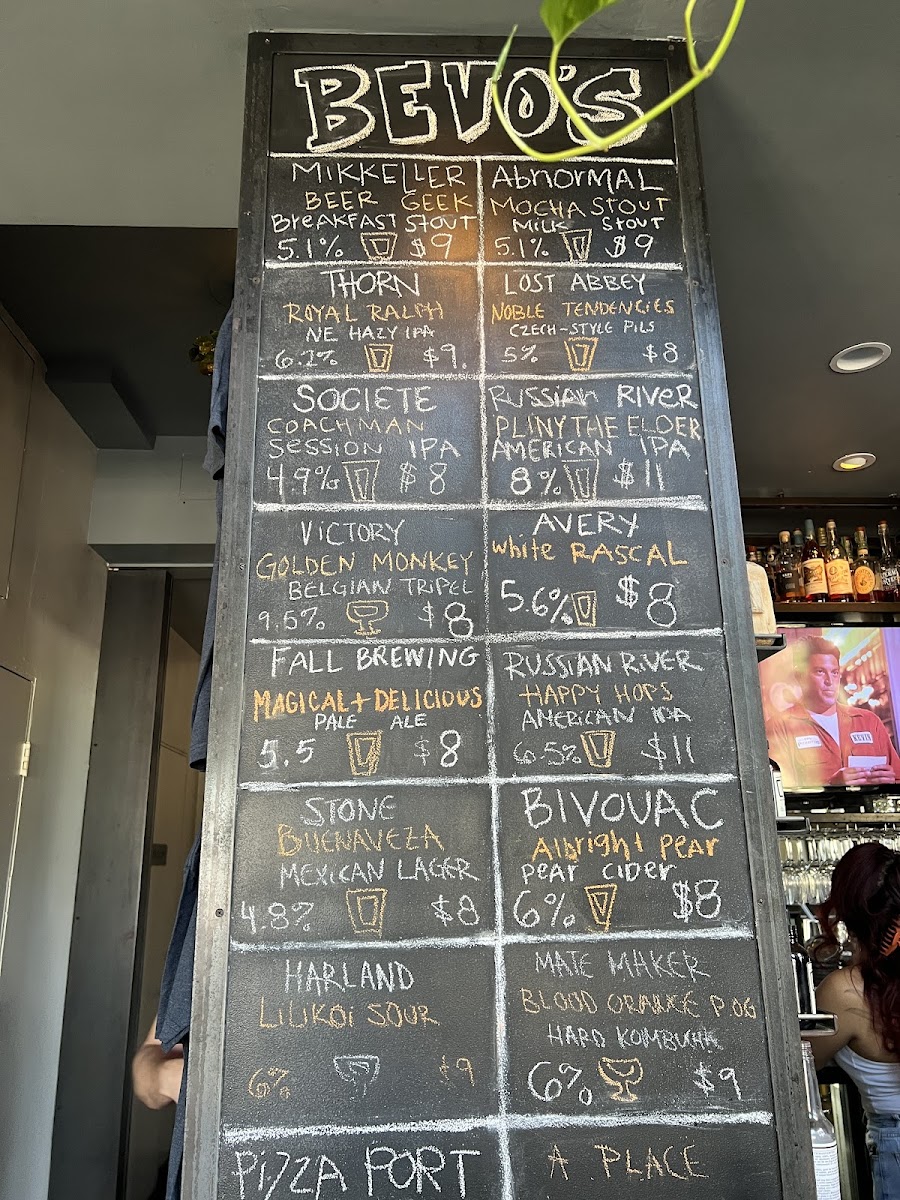 BEVO'S
MIKKELLER
BEER GEEK
BREAKFAST STOUT
5.1% $9
AbNORMAL
MOCHA STOUT
MILK STOUT
5.1% $9
THORN
ROYAL RALPH
NE HAZY IPA
6.2% $9.
LOST ABBEY
NOBLE TENDENCIES
CZECH-STYLE PILS
5% $8
SOCIETE
COACHMAN
SESSION IPA
4.9% $8
RUSSIAN RIVER
PLINY THE ELDER
AMERICAN IPA
8% $11
VICTORY
GOLDEN MONKEY
BELGIAN TRIPEL
9.5% $8
AVERY
White RASCAL
5.6% $8
FALL BREWING
MAGICAL + DELICIOUS
PALE ALE
5.5 $8
RUSSIAN RIVER
HAPPY HOPS
AMERICAN IPA
6.5% $11
STONE
BUENAVEZA
MEXICAN LAGER
4.8% $8
BIVOUAC
Albright pear
pear cider
6% $8
HARLAND
LILIKOI SOUR
6% $9
MATE MAKER
BLOOD ORANGE P.OG
HARD KOMBUCHA
6% $9
PIZZA PORT
A PLACE
KEVIN